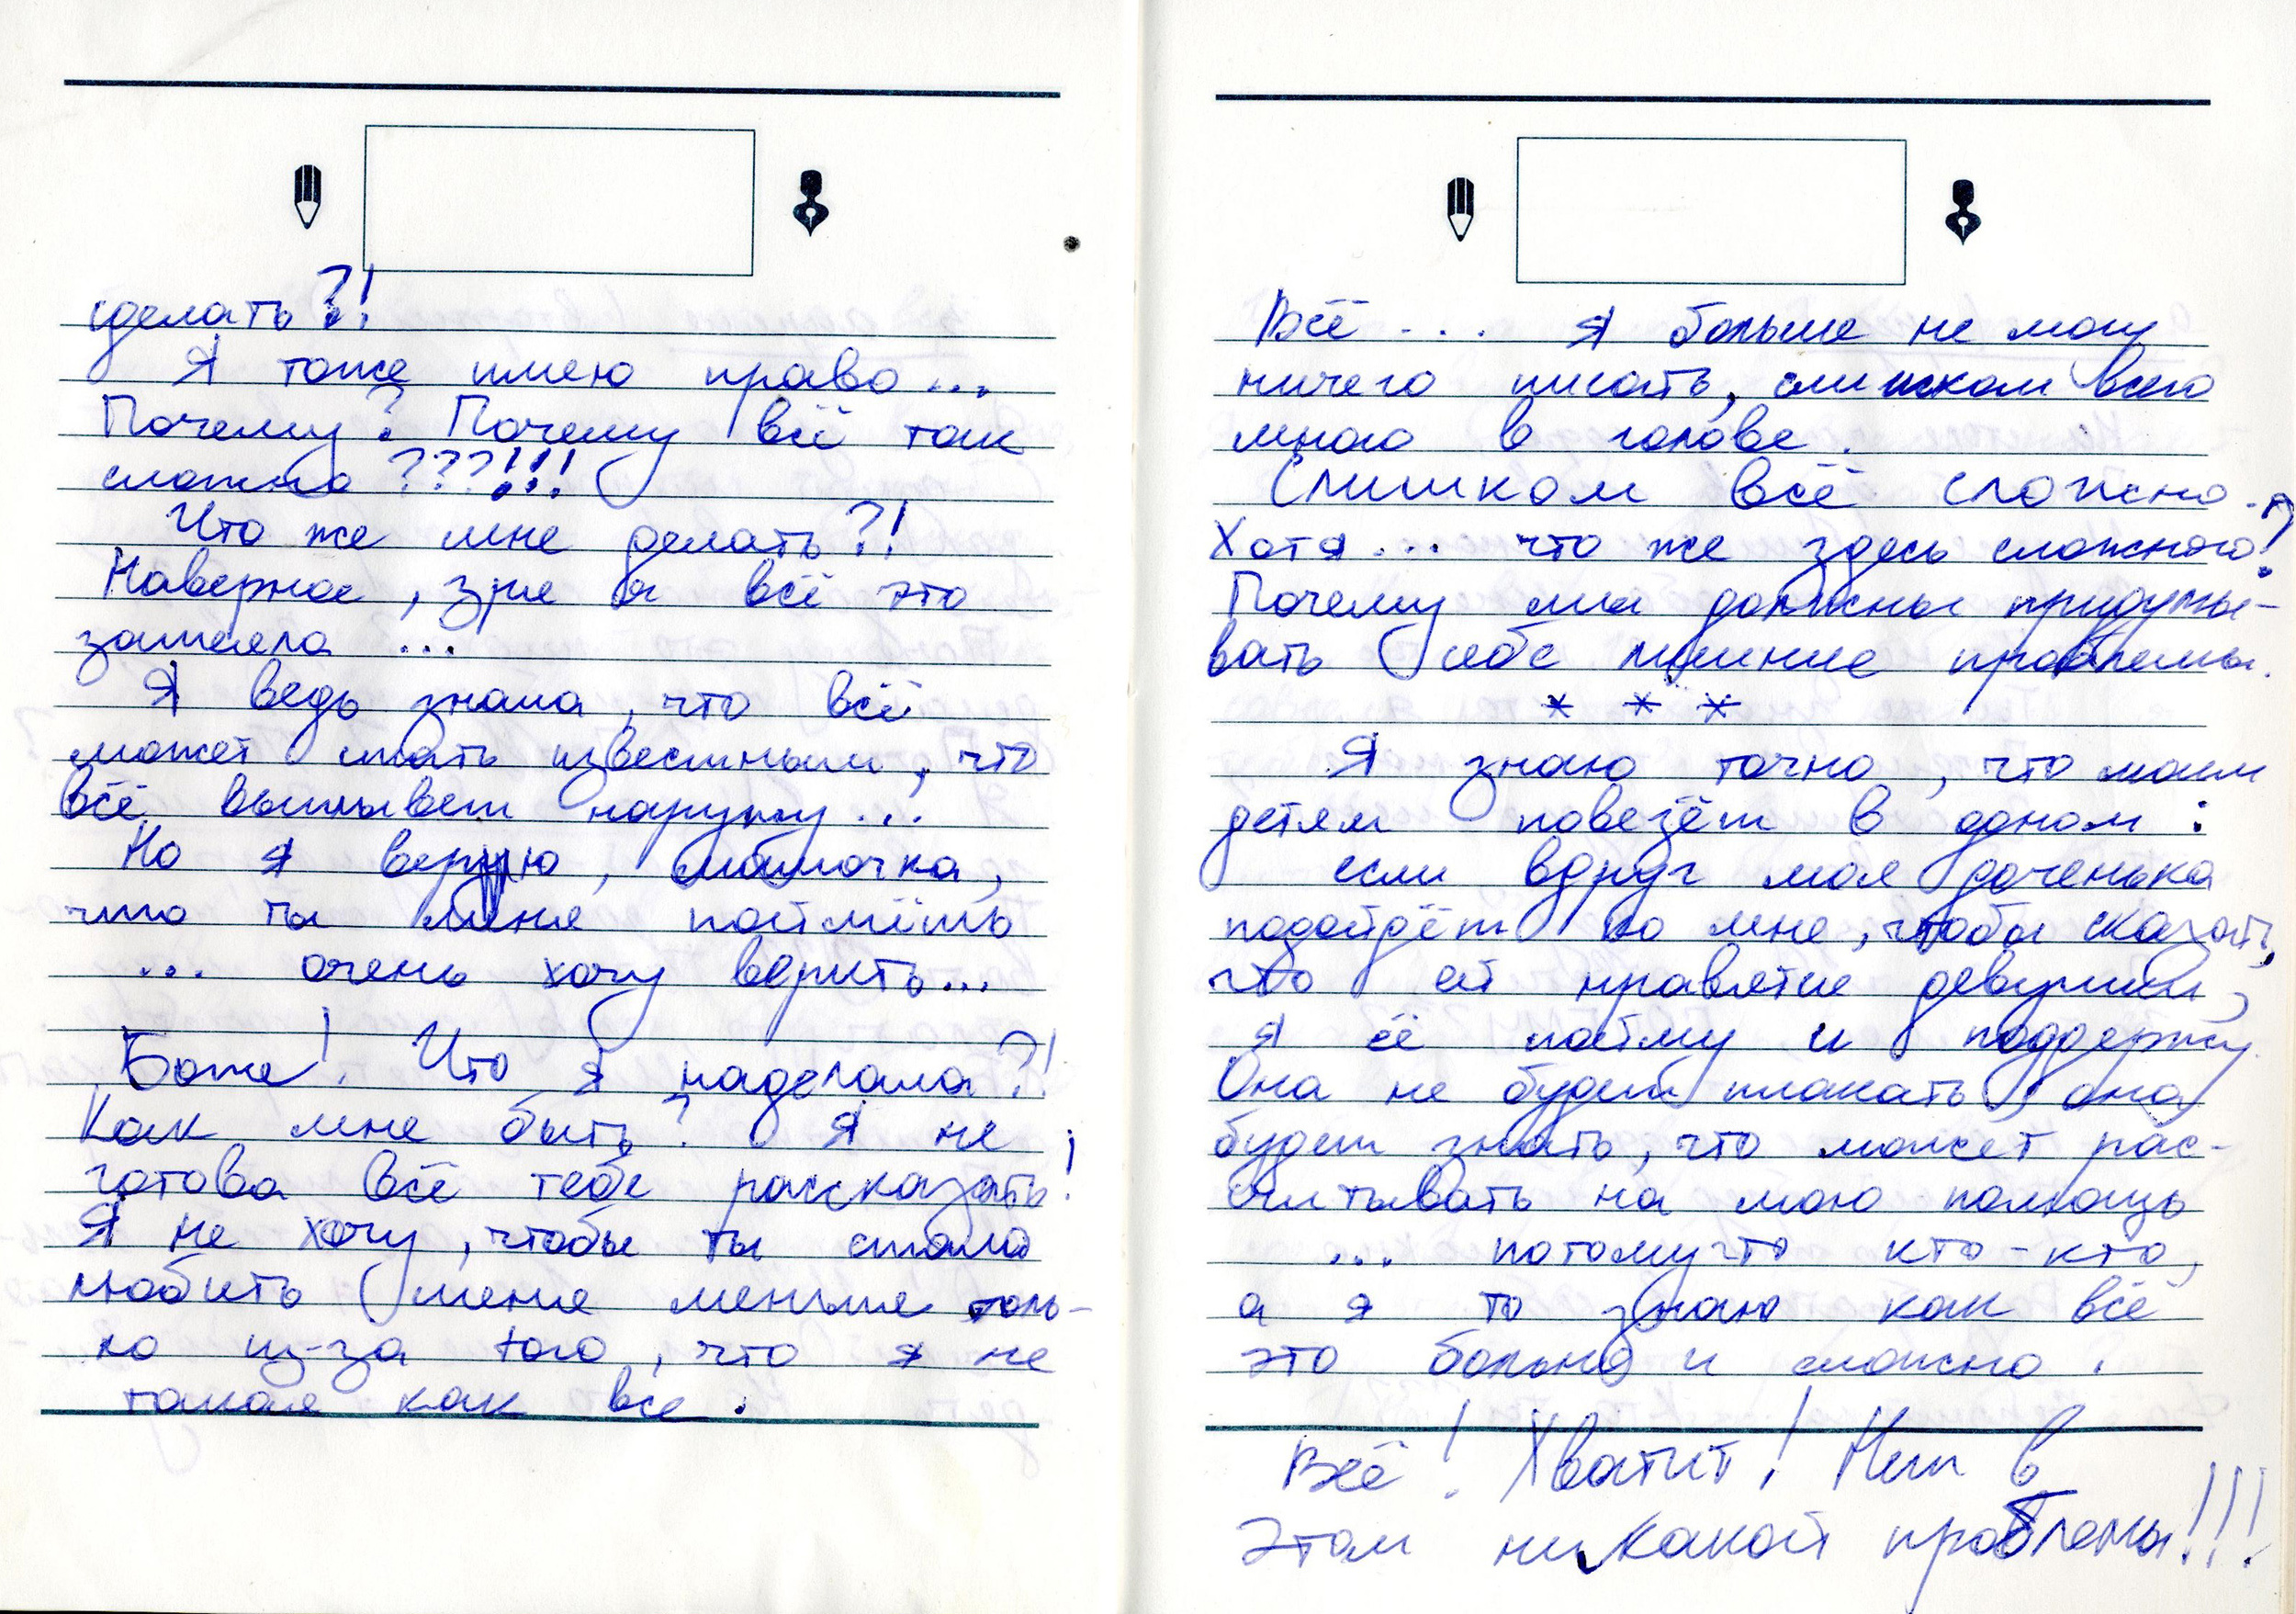 сделать?!
Я тоже имею право...
Почему? Почему всё так
сложно???!!!
Что же мне делать?!
Наверное, зря я всё это
затеяла ...
Я ведь знала, что всё
может стать известным, что
всё выплывет наружу...
Но я верю, мамочка,
что ты меня поймёшь
... очень хочу верить...
Боже! Что я наделала?!
Как мне быть? Я не
готова всё тебе рассказать!
Я не хочу, чтобы ты стала
любить меня меньше толь-
ко из-за того, что я не
такая как все.
Всё ... Я больше не могу
ничего писать, слишком всего
много в голове.
Слишком всё сложно.
Хотя... что же здесь сложного?!
Почему мы должны придумы-
вать себе лишние проблемы.
* * *
Я знаю точно, что моим
детям повезёт в одном:
если вдруг моя доченька
подойдёт ко мне, чтобы сказать,
что ей нравятся девушки,
я её пойму и поддержу.
Она не будет плакать, она
будет знать, что может рас-
считывать на мою помощь
... потому что кто-кто,
а я то знаю как всё
это больно и сложно.
Всё! Хватит! Нет в
этом никакой проблемы!!!